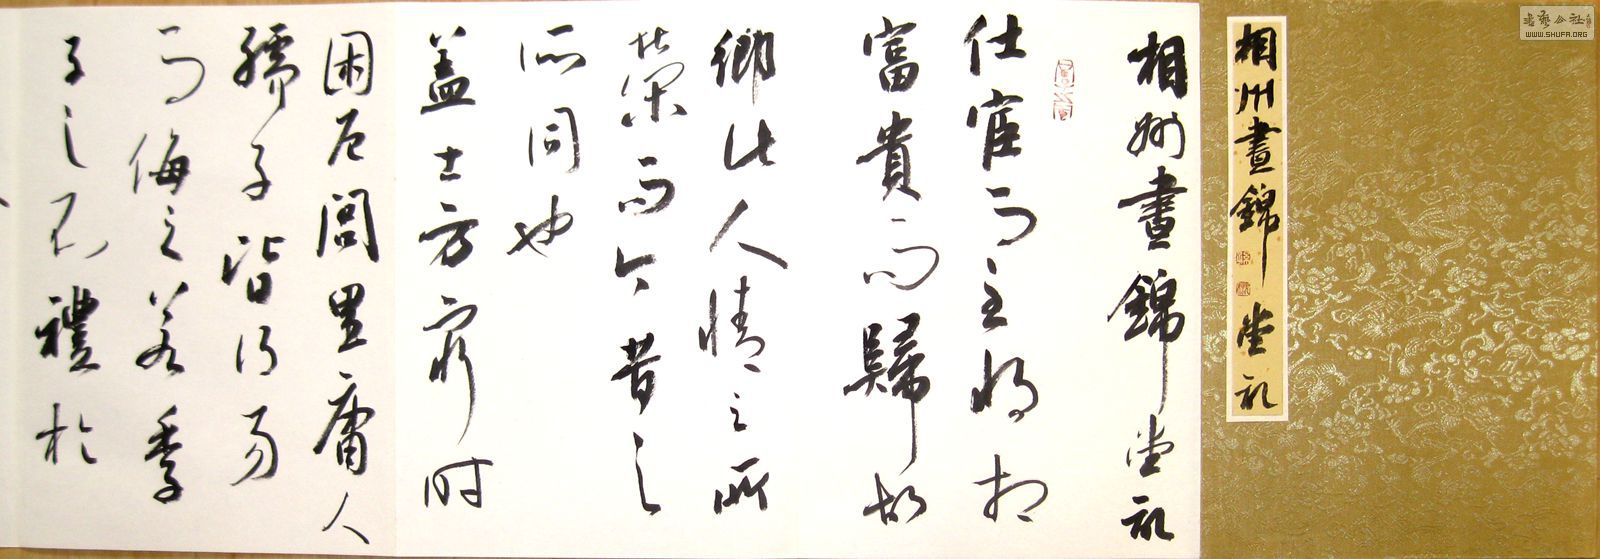 相州晝錦堂記
相州晝錦堂記
仕宦而至將相
富貴而歸故
鄉此人情之所
榮而今昔之
所同也
盖士方窮時
困厄閭里庸人
孺子皆得易
而侮之若季
子之不禮於
書藝公社
WWW.SHUFA.ORG